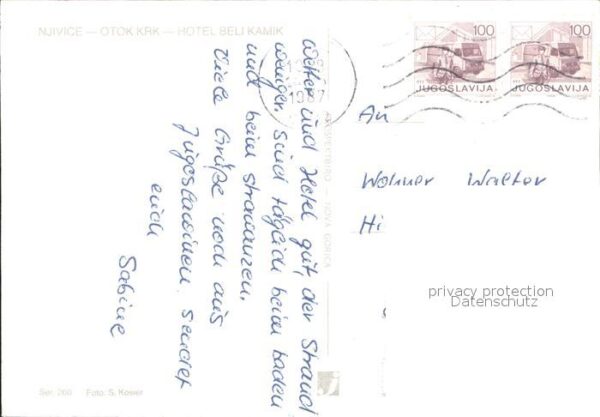 NJIVICE — OTOK KRK — HOTEL BELI KAMIK
100
JUGOSLAVIJA
100
JUGOSLAVIJA
1987
Wetter und Hotel gut, der Strand
weniger sind täglich beim baden
und beim strawanzen.
Viele Grüße noch aus
Jugoslawinen sendet
euch
Sabine
NOVA GORICA
An
Walter
Hi
privacy protection
Datenschutz
Ser. 260 Foto: S. Kosier